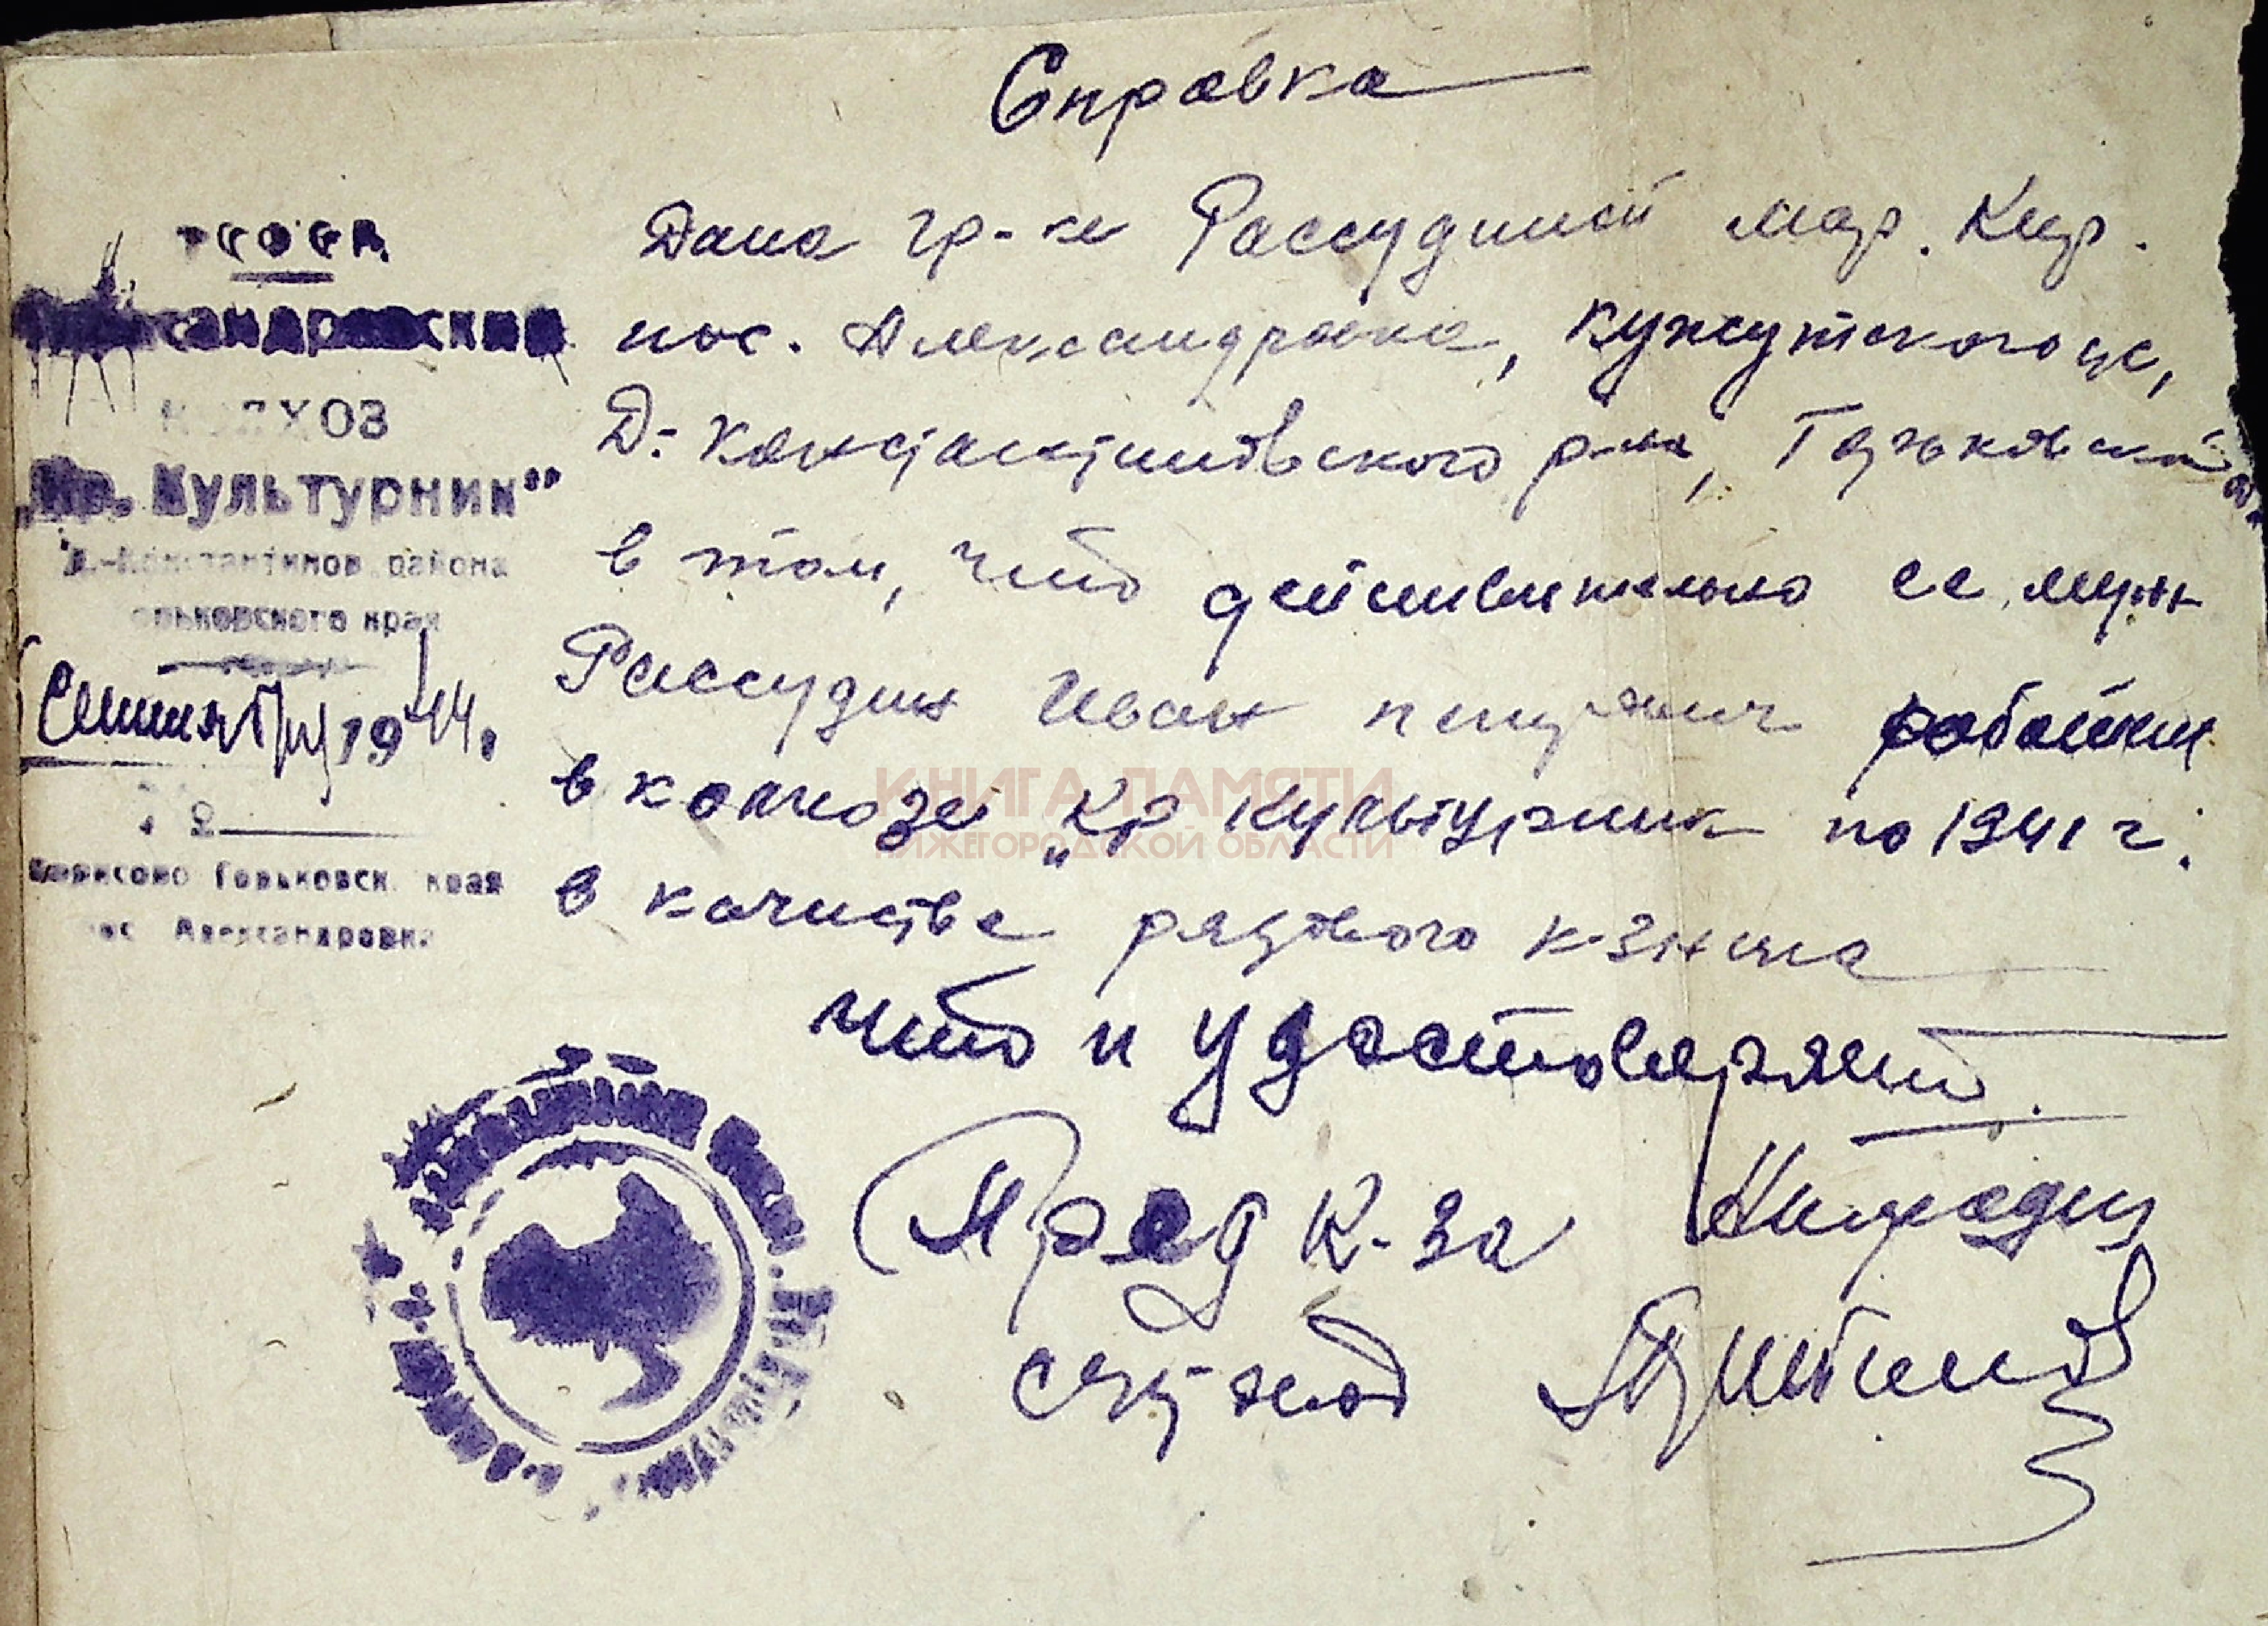 Справка
РСФСР
Александровский
КОЛХОЗ
„Кр. Культурник"
Д.-Константинов. района
Горьковского края
Сентября 1944.
Борисово Горьковск. края
пос Александровка
Дана гр-ке Рассудиной Мар. Кир.
пос. Александровка, Кужутского с/с,
Д-Константиновского р-на, Горьковской
в том, что действительно ее муж
Рассудин Иван Петрович работал
в колхозе „Кр Культурник по 1941 г.
в качестве рядового к-зника
что и удостоверяет.
Пред к-за
Счетовод
КНИГА ПАМЯТИ
НИЖЕГОРОДСКОЙ ОБЛАСТИ